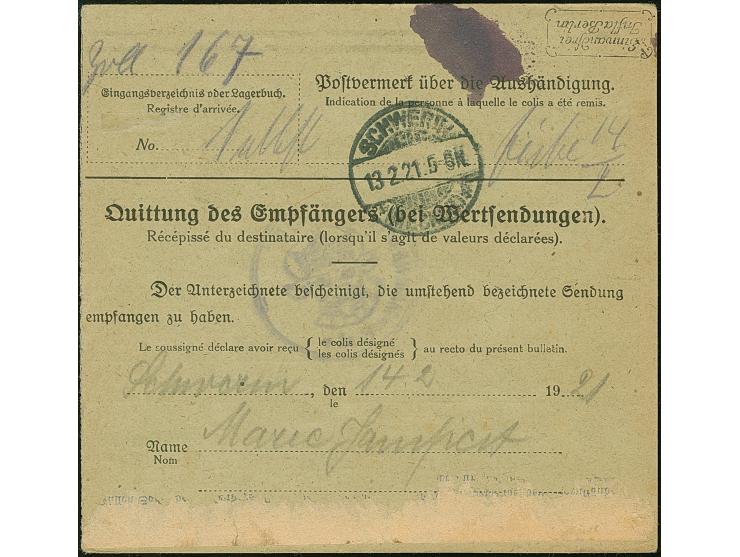 Zoll 167
Einwandfrei
Infla Berlin
Eingangsverzeichnis oder Lagerbuch.
Registre d'arrivée.
No.
Postvermerk über die Aushändigung.
Indication de la personne à laquelle le colis a été remis.
14/2
SCHWERIN
13.2.21.5-6N.
Quittung des Empfängers (bei Wertsendungen).
Récépissé du destinataire (lorsqu'il s'agit de valeurs déclarées).
Der Unterzeichnete bescheinigt, die umstehend bezeichnete Sendung
empfangen zu haben.
Le soussigné déclare avoir reçu { le colis désigné / les colis désignés } au recto du présent bulletin.
Schwerin, den 14 2 1921
le
Name Marie
Nom